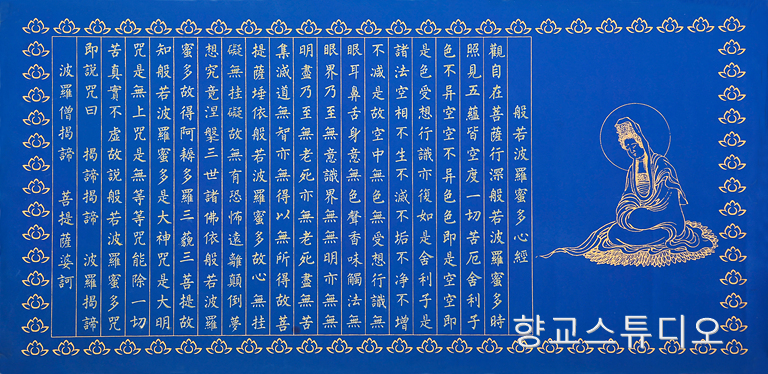 般若波羅蜜多心經
觀自在菩薩行深般若波羅蜜多時
照見五蘊皆空度一切苦厄舍利子
色不異空空不異色色即是空空即
是色受想行識亦復如是舍利子是
諸法空相不生不滅不垢不净不增
不减是故空中無色無受想行識無
眼耳鼻舌身意無色聲香味觸法無
眼界乃至無意識界無無明亦無無
明盡乃至無老死亦無老死盡無苦
集滅道無智亦無得以無所得故菩
提薩埵依般若波羅蜜多故心無挂
礙無挂礙故無有恐怖遠離顛倒夢
想究竟涅槃三世諸佛依般若波羅
蜜多故得阿耨多羅三藐三菩提故
知般若波羅蜜多是大神咒是大明
咒是無上咒是無等等咒能除一切
苦真實不虛故說般若波羅蜜多咒
即說咒曰 揭諦揭諦 波羅揭諦
波羅僧揭諦 菩提薩婆訶
향교스튜디오